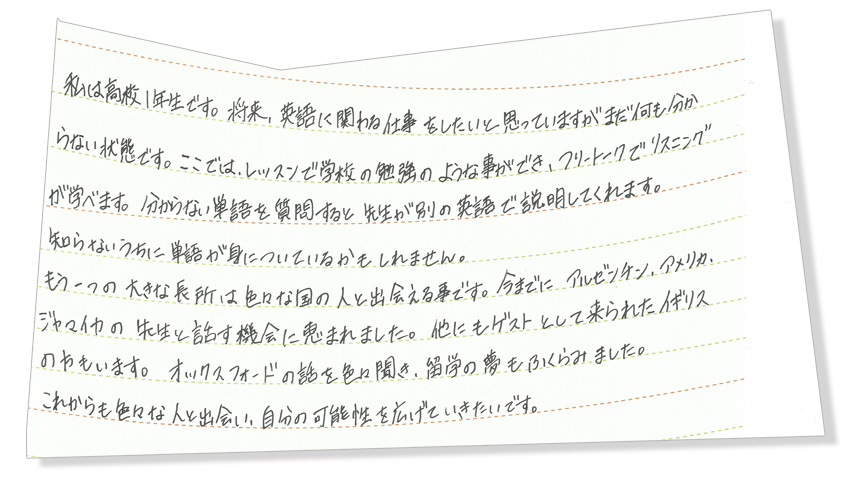 私は高校1年生です。将来、英語に関わる仕事をしたいと思っていますがまだ何も分か
らない状態です。ここでは、レッスンで学校の勉強のような事ができ、フリートークでリスニング
が学べます。分からない単語を質問すると先生が別の英語で説明してくれます。
知らないうちに単語が身についているかもしれません。
もう一つの大きな長所は色々な国の人と出会える事です。今までに アルゼンチン、アメリカ、
ジャマイカの先生と話す機会に恵まれました。他にもゲストとして来られたイギリス
の方もいます。オックスフォードの話を色々聞き、留学の夢もふくらみました。
これからも色々な人と出会い、自分の可能性を広げていきたいです。